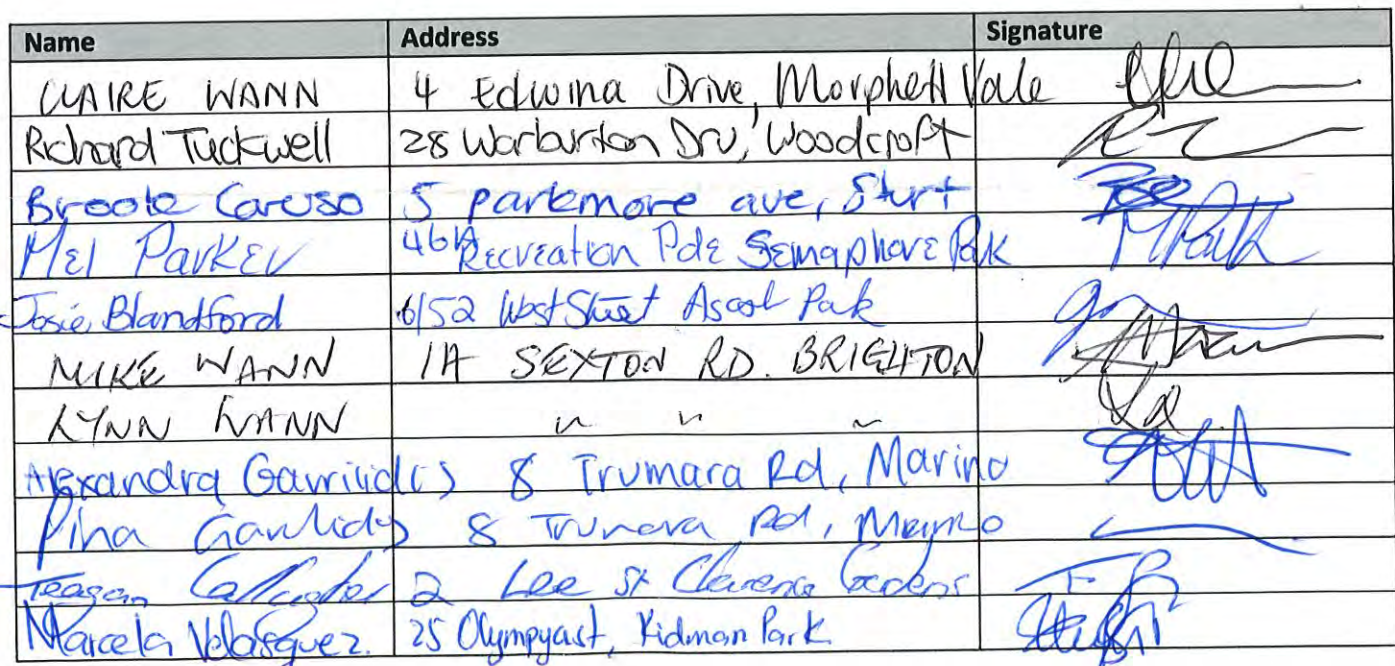 Name Address Signature
CLAIRE WANN 4 Edwina Drive, Morphett Vale
Richard Tuckwell 28 Warburton Drv, Woodcroft
Brooke Caruso 5 parkmore ave, Sturt
Mel Parker 46A Recreation Pde Semaphore Park
Josie Blandford 6/52 West Street Ascot Park
MIKE WANN 1A SEXTON RD. BRIGHTON
LYNN WANN " " "
Alexandra Gavrilidis 8 Trumara Rd, Marino
Pina 8 Trumara Rd, Marino
Teagan Callagher 2 Lee St Clarence Gardens
Marcela Velasquez. 25 Kidman Park